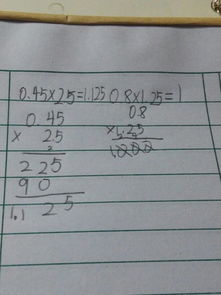 0.45×2.5=1.125 0.8×1.25=1
0.45 0.8
× 2.5 ×1.25
2 2 5 1.000
9 0
1.1 2 5